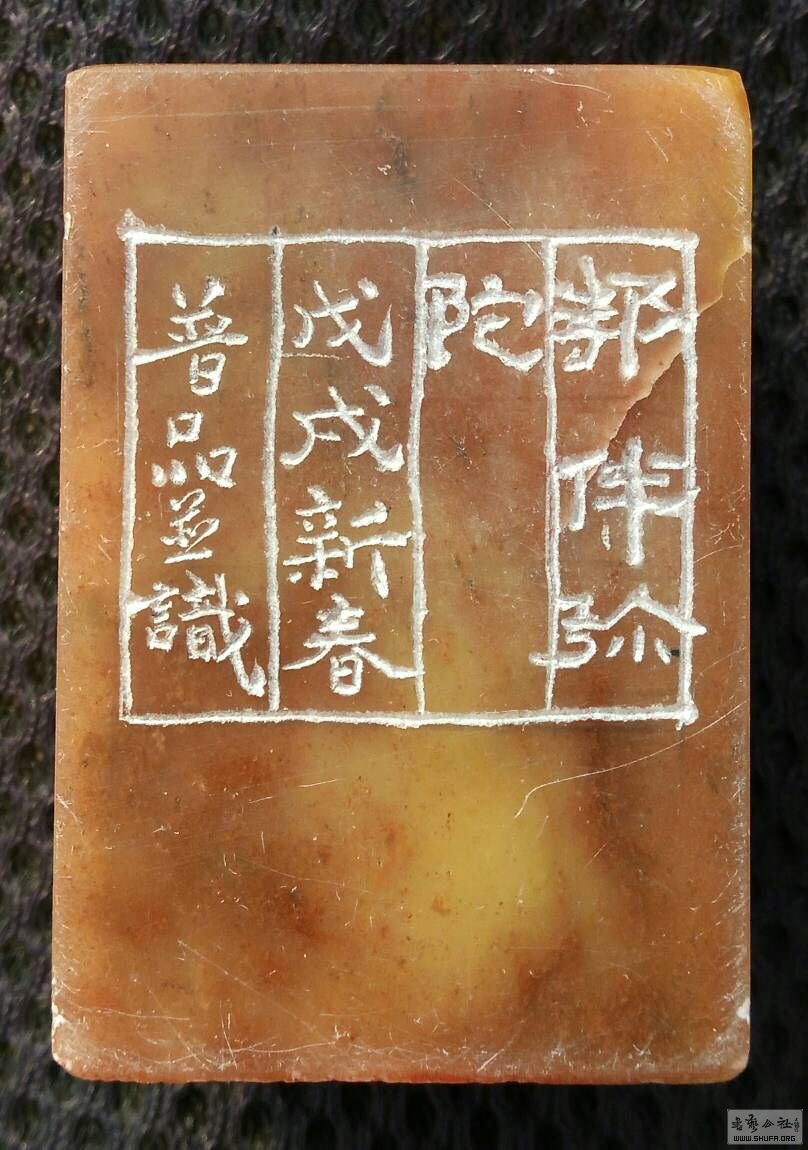 伴弥
陀
戊戌新春
普品並識
書藝公社
WWW.SHUFA.ORG